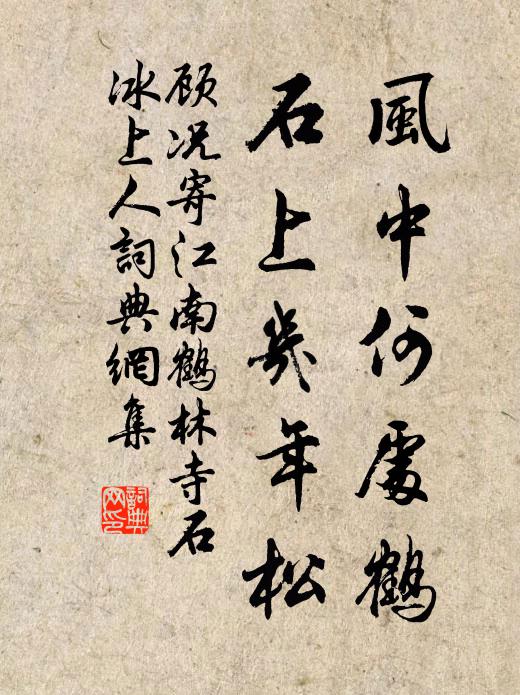 風中何處鶴
石上幾年松
顧況寄江南鶴林寺石
冰上人詞典網集
詞典
网印